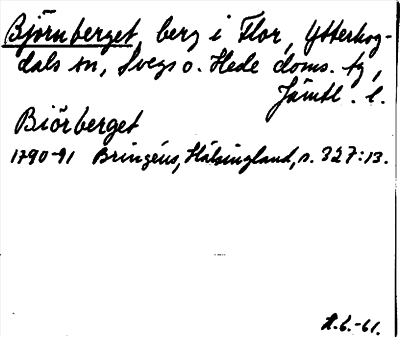 Björnberget, berg i Flor, Ytterhog-
dals sn, Svegs o. Hede doms. tg,
Jämtl. l.
Biörberget
1790-91 Bringéus, Hälsingland, s. 327:13.
H.G.-61.